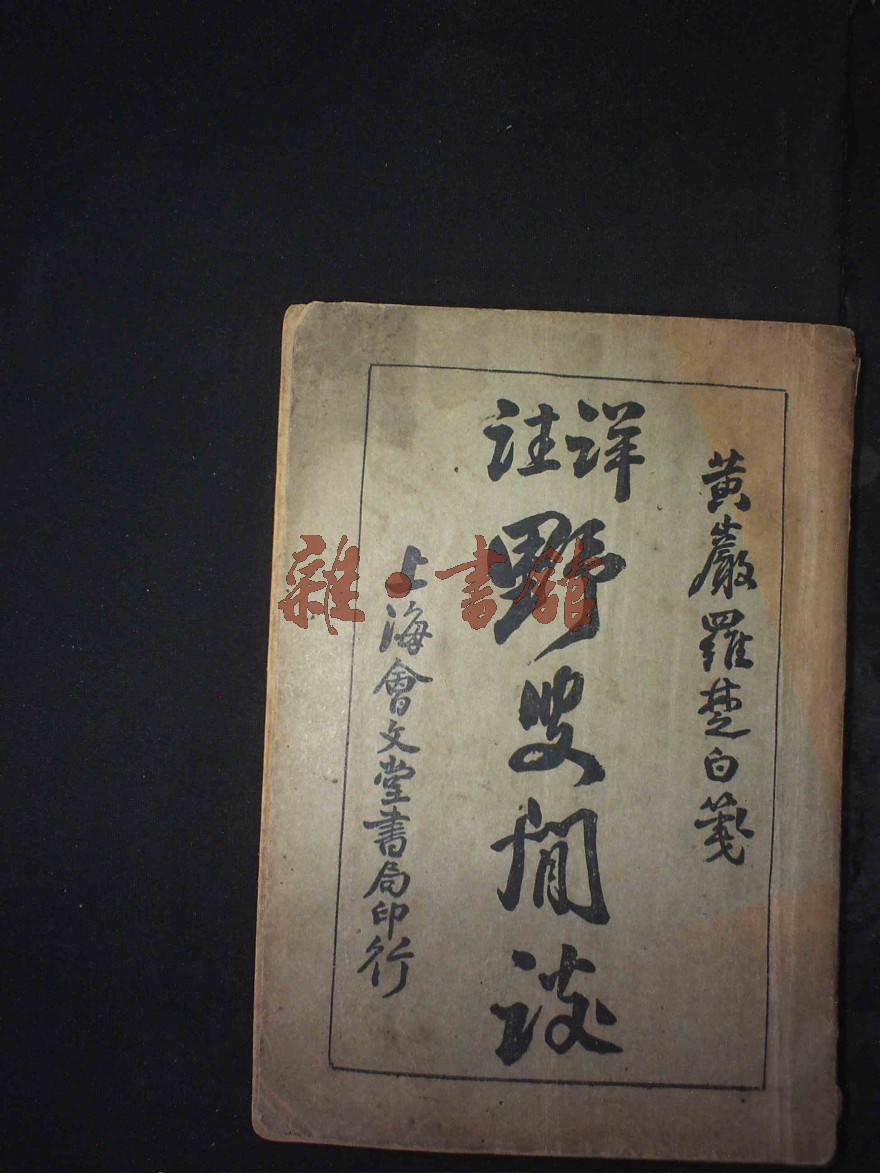 黃巖羅楚白箋
詳註
野叟閒談
上海會文堂書局印行
雜·書館